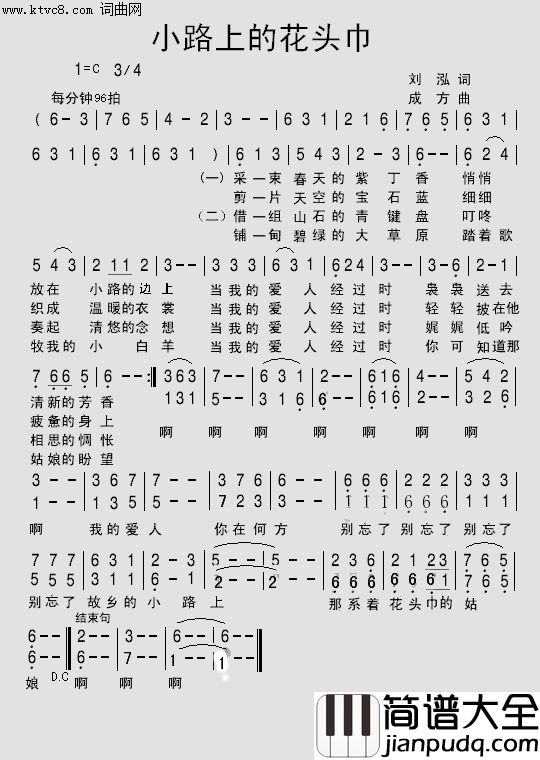 www.ktvc8.com 词曲网
小路上的花头巾
1=C 3/4
刘泓词
每分钟96拍
成方曲
( 6 - 3 | 7 6 5 | 4 - 2 | 3 - - | 6 3 1 | 2 1 6 | 7 6 5 | 6 3 1 |
6 3 1 | 6 3 1 | 6 3 1 ) | 6 1 3 | 5 4 3 | 2 - 3 | 6 - - | 6 2 4 |
(一) 采一束 春天的 紫丁香 悄悄
剪一片 天空的 宝石蓝 细细
(二) 借一组 山石的 青键盘 叮咚
铺一甸 碧绿的 大草原 踏着歌
5 4 3 | 2 112 | 3 - - | 3 4 3 | 6 3 1 | 624 | 3 - - | 3 - 6 | 2 - 1 |
放在 小路的边上 当我的爱人经过时 袅袅送去
织成 温暖的衣裳 当我的爱人经过时 轻轻披在他
奏起 清悠的念想 当我的爱人经过时 娓娓低吟
牧我的小白羊 当我的爱人经过时 你可知道那
7 66 5 | 6 - :‖ 363 | 7 - - | 6 3 1 | 2 - - | 616 | 4 - - | 5 4 2 |
131 | 2 - - | 3 1 6 | 6 - - | 616 | 2 - - | 3 2 6 |
清新的芳香
疲惫的身上
相思的惆怅
姑娘的盼望
啊 啊 啊 啊 啊 啊 啊
3 - - | 3 6 7 | 7 - - | 5 1 2 | 3 - - | 6 6 6 | 2 2 2 | 3 3 3 |
1 - - | 1 3 5 | 5 - - | 7 2 3 | 6 - - | 1 1 1 | 6 6 6 | 1 1 1 |
啊 我的爱人 你在何方 别忘了别忘了别忘了
7 7 7 | 6 3 1 | 2 4 3 | 5 - - | 5 - - | 2 3 6 | 2 1 23 | 7 6 5 |
5 5 5 | 6 3 1 | 7 6 7 | 2 - - | 2 - - | 6 6 6 | 6 6 61 | 7 6 5 |
别忘了 故乡的小路上 那系着花头巾的姑
结束句
6 - - ‖ 2 - - | 3 - - | 6 - - | 6 - - ‖
6 - - ‖ 6 - - | 7 - - | 1 - - | 1
D.C
娘 啊 啊 啊
简谱大全
jianpudq.com